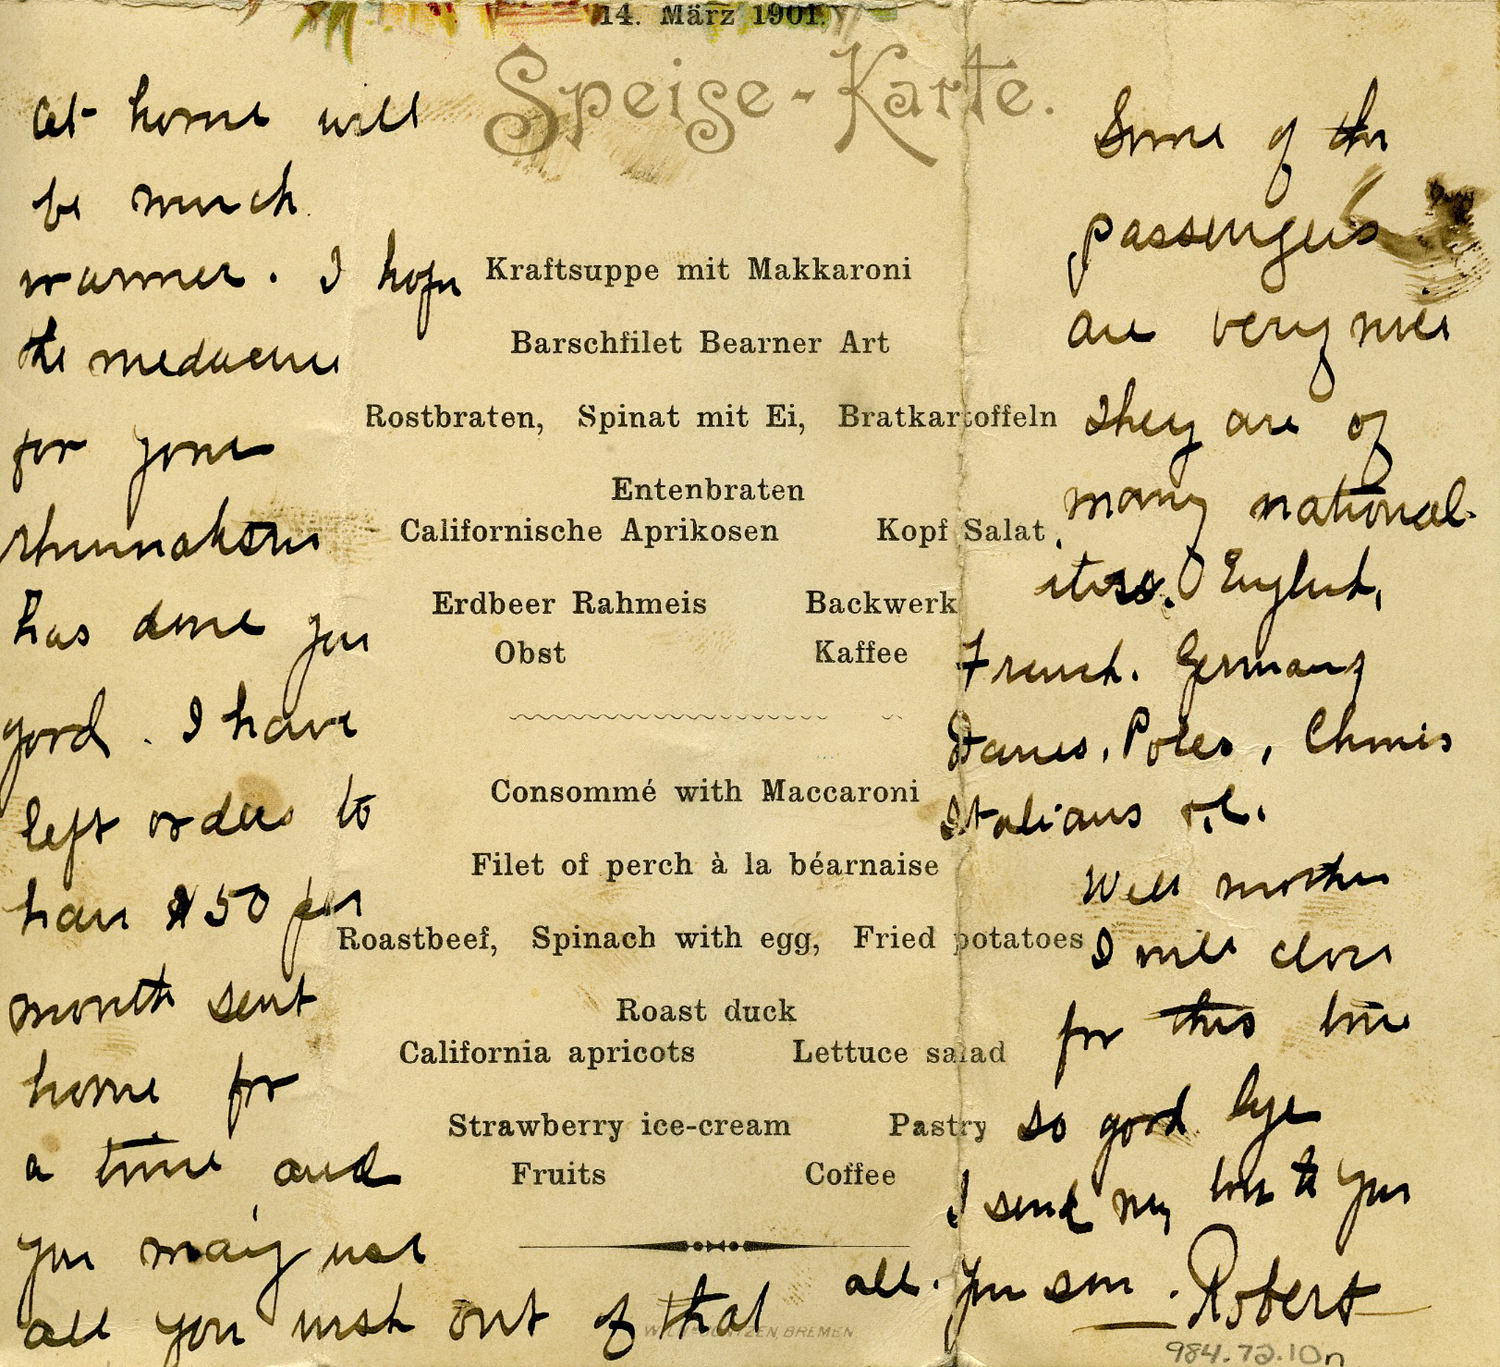 14. März 1901.
Speise-Karte.
At home will
be much
warmer. I hope
the medicene
for your
rhumatism
has done you
good. I have
left orders to
have $50 per
month sent
home for
a time and
you may use
all you wish out of that
Kraftsuppe mit Makkaroni
Barschfilet Bearner Art
Rostbraten, Spinat mit Ei, Bratkartoffeln
Entenbraten
Californische Aprikosen Kopf Salat
Erdbeer Rahmeis Backwerk
Obst Kaffee
Consommé with Maccaroni
Filet of perch à la béarnaise
Roastbeef, Spinach with egg, Fried potatoes
Roast duck
California apricots Lettuce salad
Strawberry ice-cream Pastry
Fruits Coffee
BREMEN
Some of the
passengers
are very nice
They are of
many national-
ities. English,
French. Germany
Danes, Poles, Chinis
Italians
Well mother
I will close
for this time
so good bye
I send my love to you
all. Your son. Robert
984.72.10n